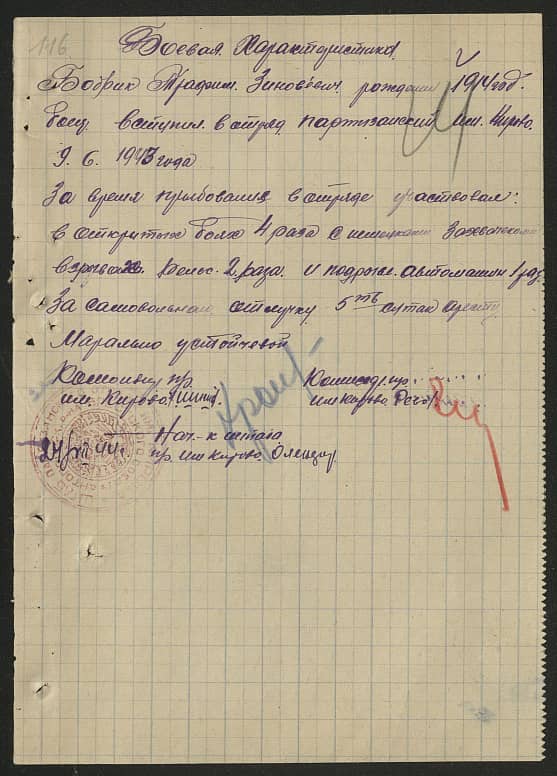 116
Боевая Характористика
Бобрик Трафим Зиновьевич рождения 1914 год.
боец вступил в отряд партизанский им. Кирово
9. 6. 1943 года
За время прыбования в отряде участвовал:
в открытых боях 4 раза с немецкими Захватчиками
взрыво рельс. 2 раза. и подрыве автомашин 1 раз.
За самовольную отлучку 5ть суток аресту
Марально устойчевой
Командир пр.
им. Кирово
Комиссар пр.
им Кирово
Нач-к штаба
пр. им Кирово